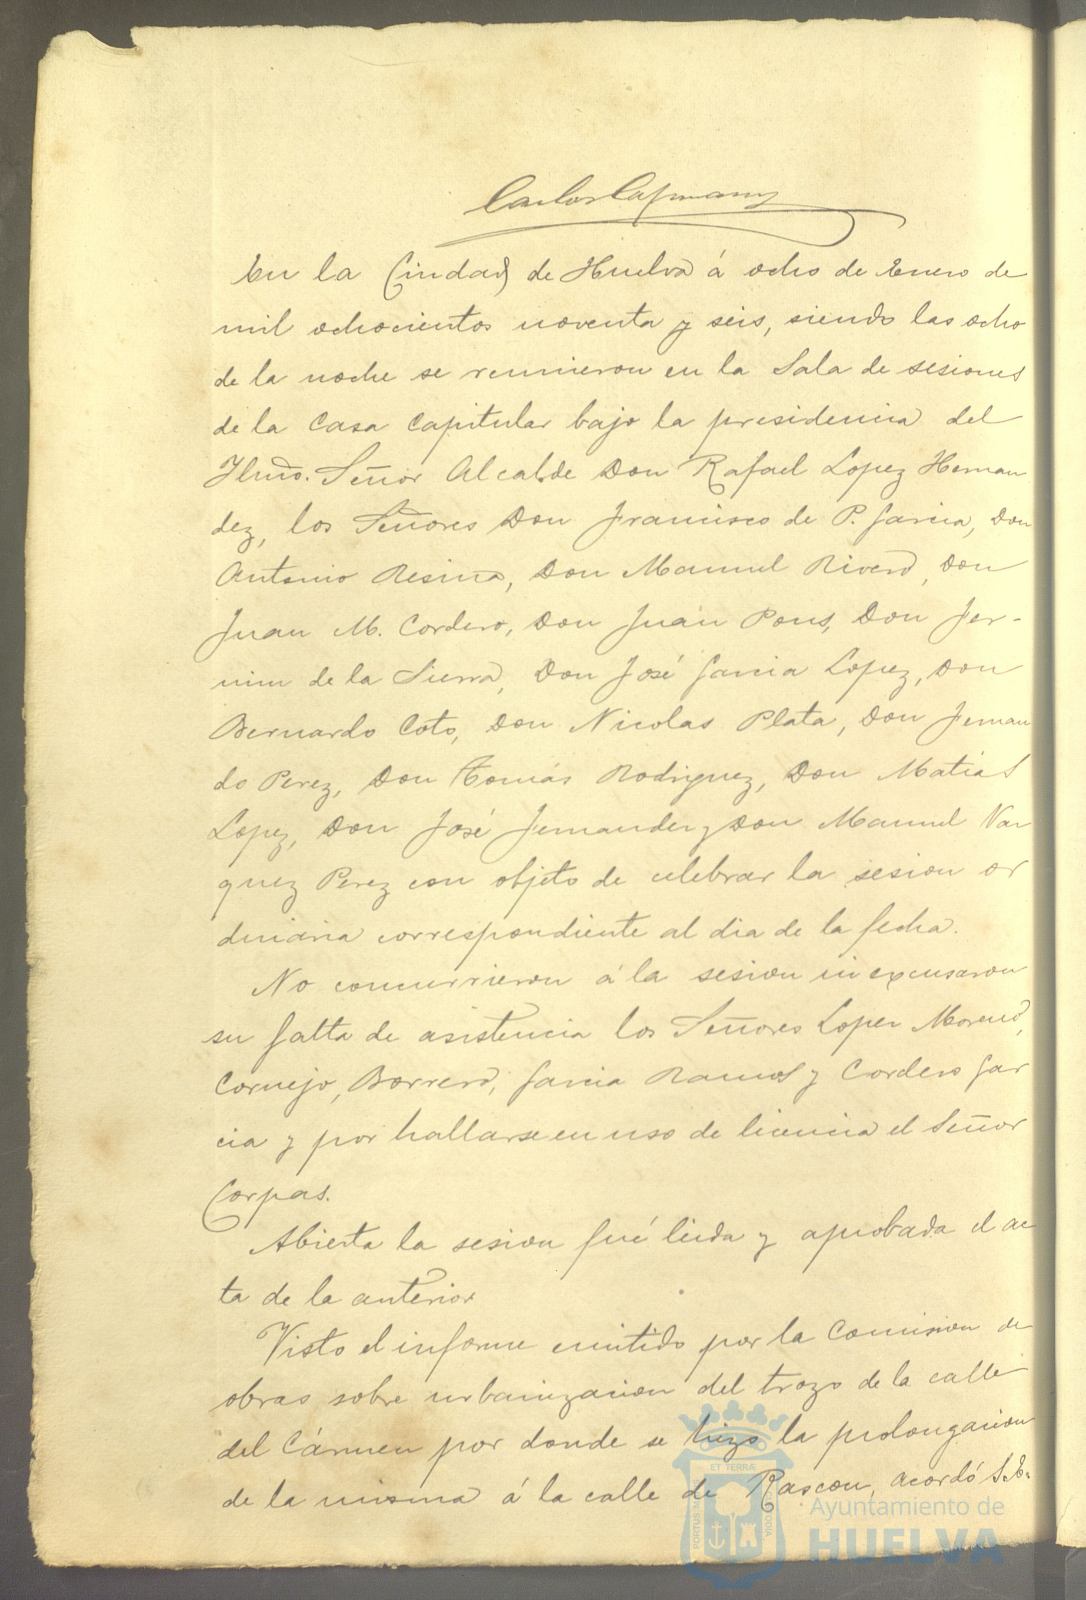 Carlos Capmany
En la Ciudad de Huelva á ocho de Enero de
mil ochocientos noventa y seis, siendo las ocho
de la noche se reunieron en la Sala de sesiones
de la Casa Capitular bajo la presidencia del
Ylmo. Señor Alcalde Don Rafael Lopez Hernan
dez, los Señores Don Francisco de P. Garcia, Don
Antonio Resina, Don Manuel Rivero, Don
Juan M. Cordero, Don Juan Pons, Don Fer-
min de la Sierra, Don José Garcia Lopez, Don
Bernardo Coto, Don Nicolas Plata, Don Fernan
do Perez, Don Tomás Rodriguez, Don Matias
Lopez, Don José Fernandez y Don Manuel Var
quez Perez con objeto de celebrar la sesion or
dinaria correspondiente al dia de la fecha.
No concurrieron á la sesion ni excusaron
su falta de asistencia los Señores Lopez Moreno,
Cornejo, Borrero, Garcia Ramos y Cordero Gar
cia y por hallarse en uso de licencia el Señor
Corpas.
Abierta la sesion fué leida y aprobada el ac
ta de la anterior
Visto el informe emitido por la Comision de
obras sobre urbanizacion del trozo de la calle
del Cármen por donde se hizo la prolongacion
de la misma á la calle de Rascon, acordó S.E.
PORTUS MARIS ET TERRÆ CUSTODIA
Ayuntamiento de
HUELVA